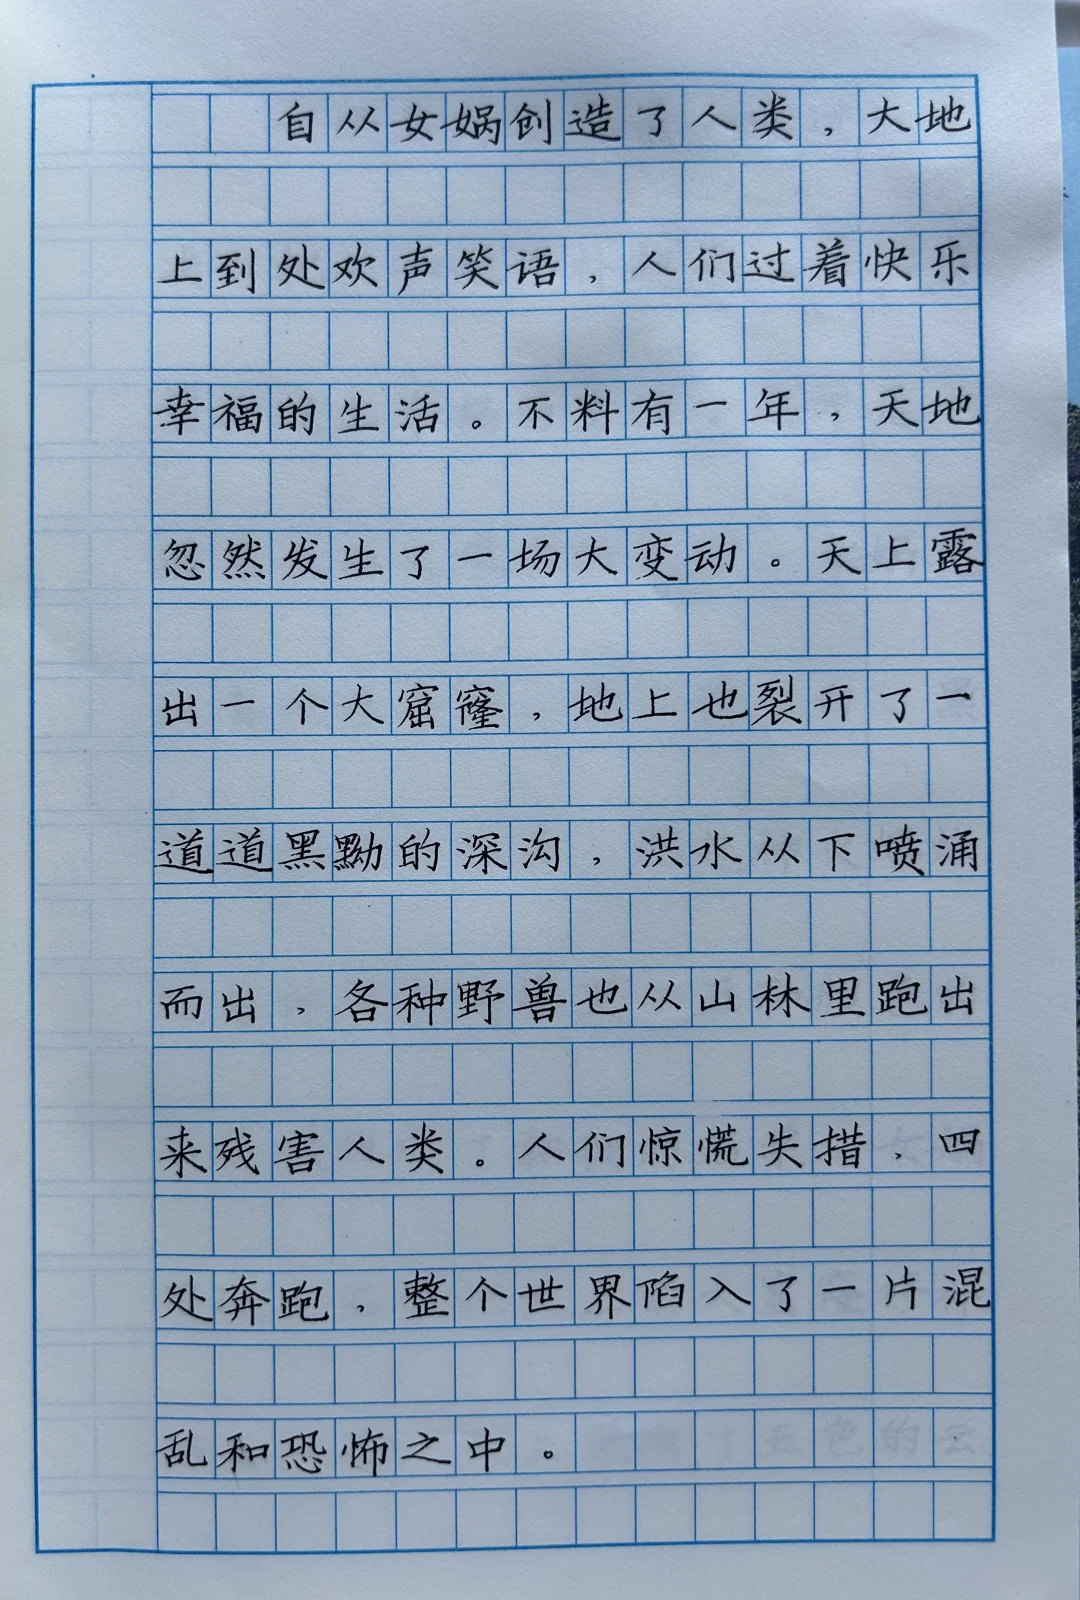 自从女娲创造了人类，大地
上到处欢声笑语，人们过着快乐
幸福的生活。不料有一年，天地
忽然发生了一场大变动。天上露
出一个大窟窿，地上也裂开了一
道道黑黝的深沟，洪水从下喷涌
而出，各种野兽也从山林里跑出
来残害人类。人们惊慌失措，四
处奔跑，整个世界陷入了一片混
乱和恐怖之中。